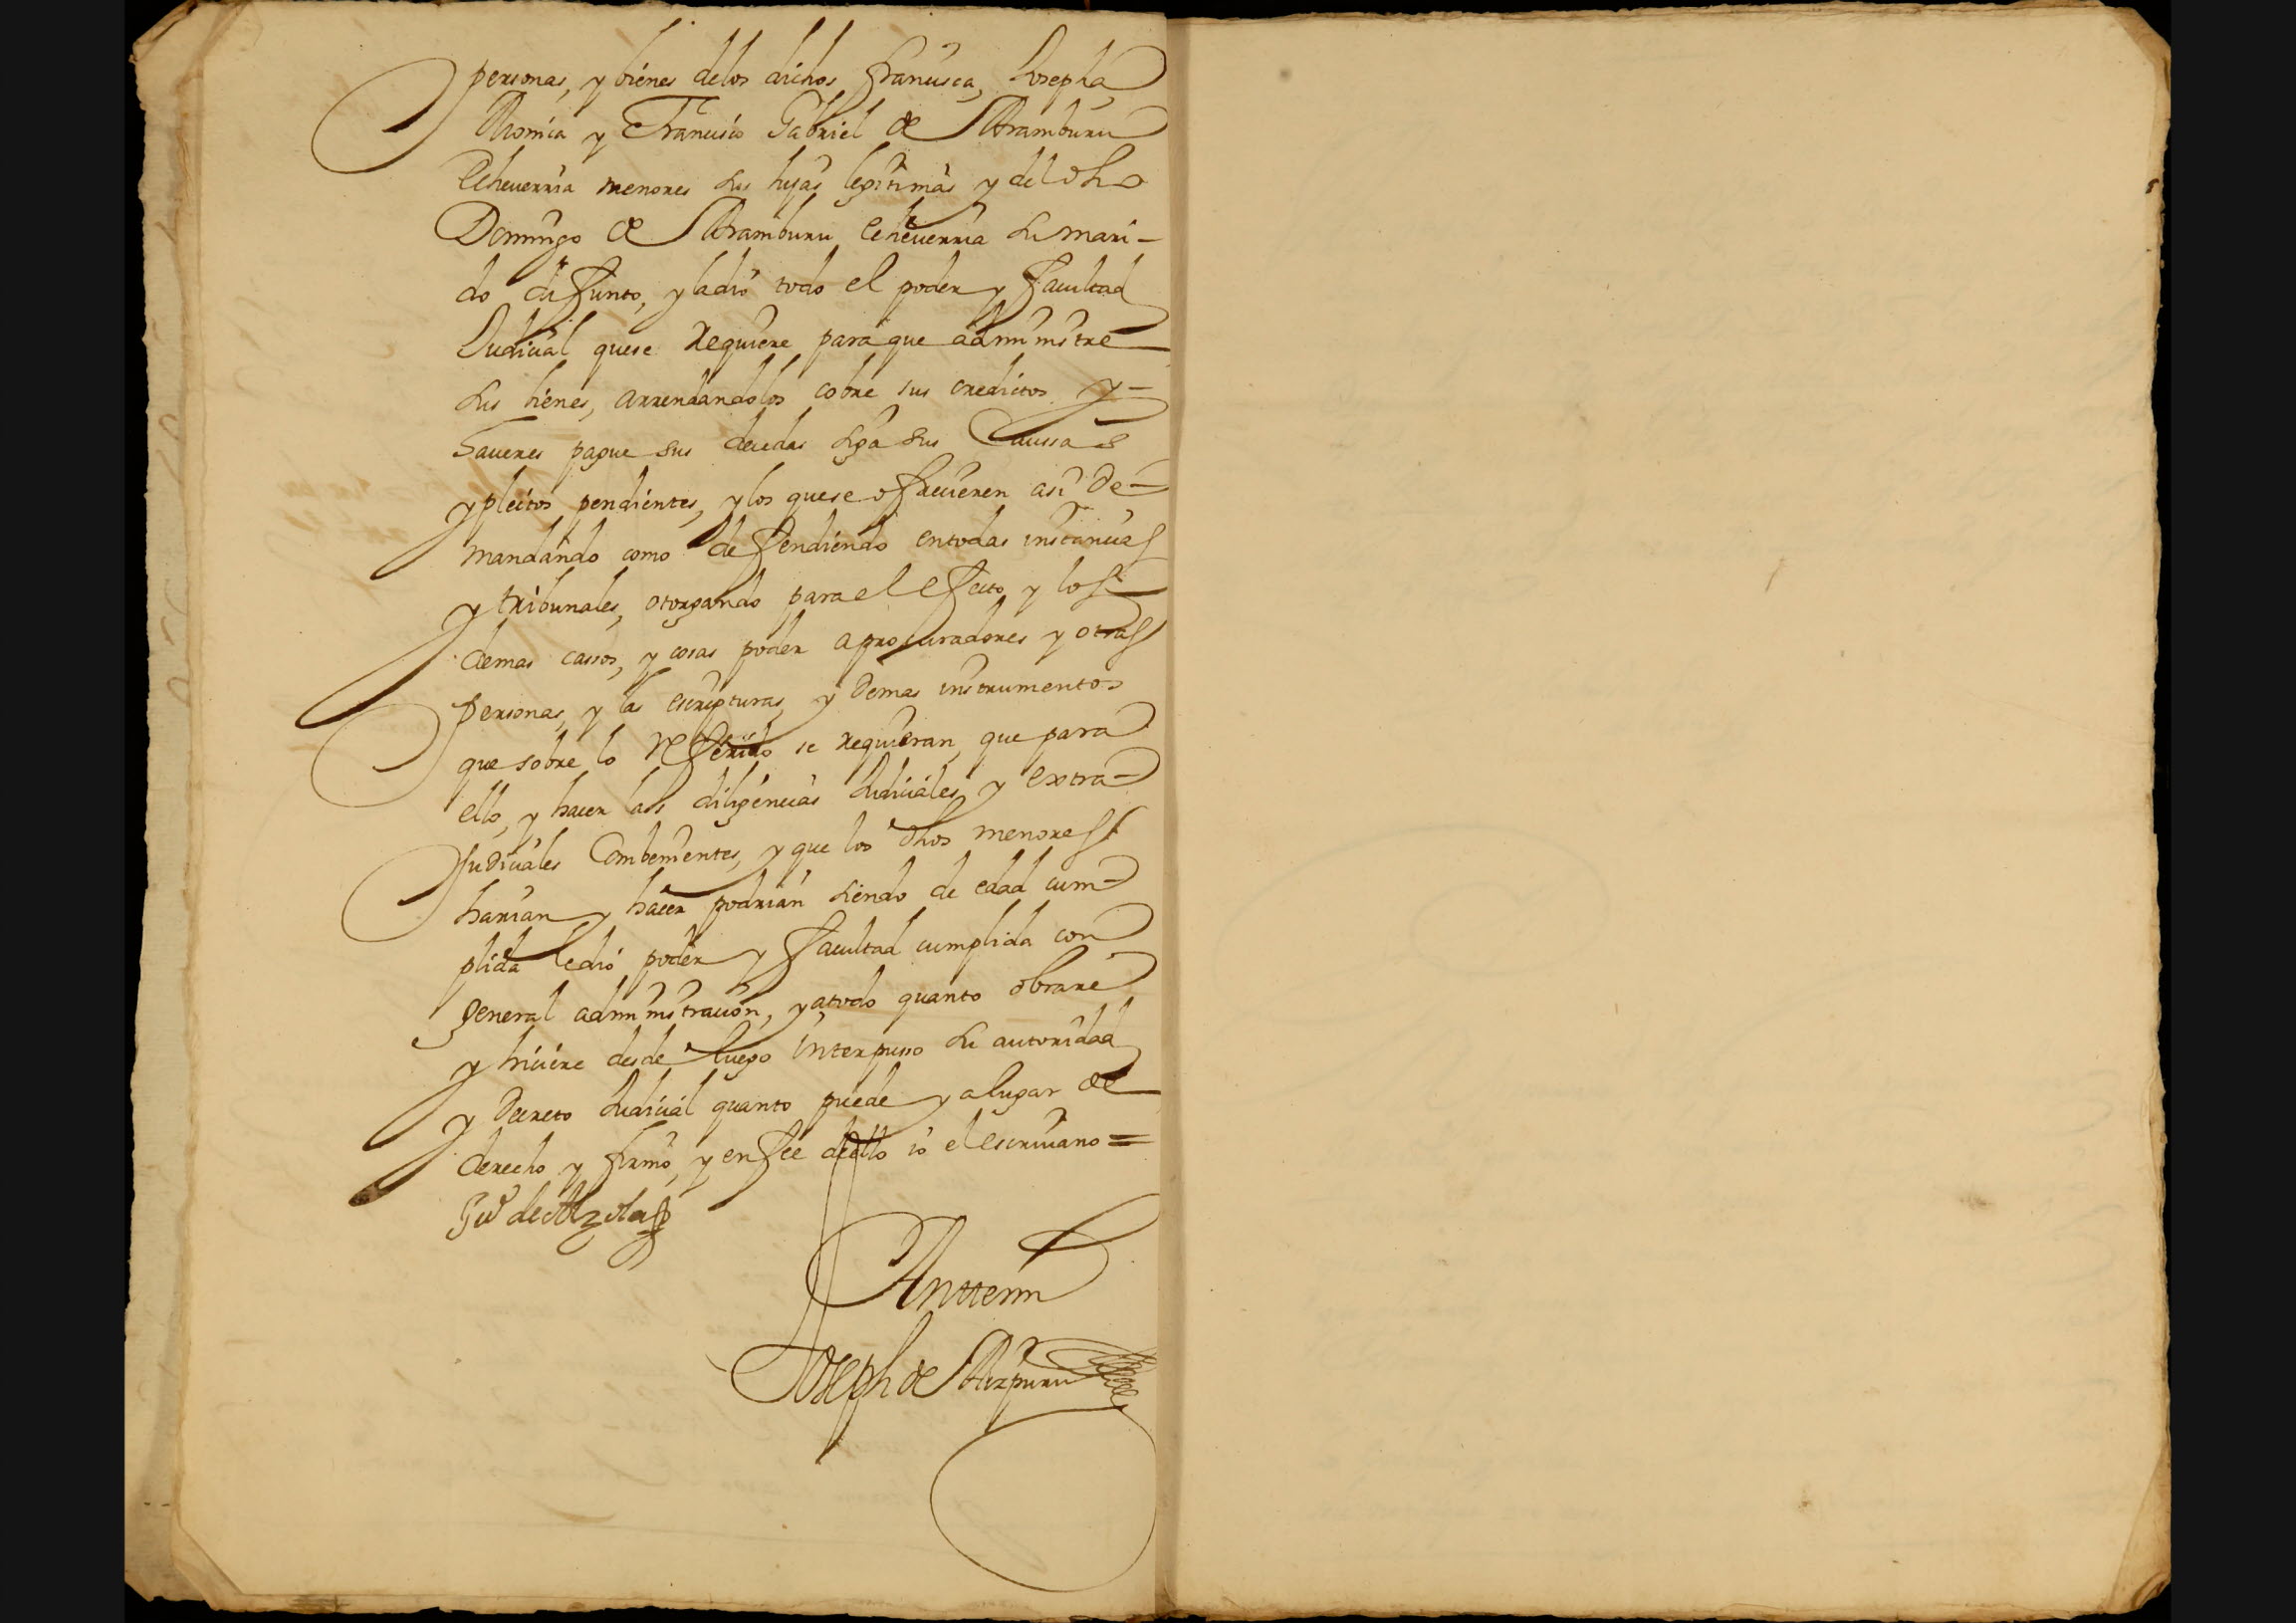 personas, y bienes delos dichos francisca, Josepha
Monica y Francisco Gabriel de Aramburu
Echeverria menores sus hijas legitimas y del dho
Domingo de Aramburu echeverria su mari-
do difunto, y ladio todo el poder y facultad
Judicial quese requiere para que administre
sus bienes, arrendandolos cobre sus creditos y=
haveres pague sus deudas siga sus Caussas
y pleitos pendientes, y los quese ofrecieren asi de-
mandando como defendiendo entodas instancias
y tribunales, otorgando para el efecto y los
demas cassos, y cosas poder aprocuradores y otras
personas, y las escripturas, y demas instrumentos
que sobre lo referido se requieran, que para
ello, y hacer las diligencias Judiciales y extra-
Judiciales Combenientes, y que los dhos menores
harian y hacer podrian siendo de edad cum-
plida ledio poder y facultad cumplida con
general administracion, y atodo quanto obrare
y hiciere desde luego interpusso su autoridad
y decreto Judicial quanto puede y alugar de
derecho y firmo, y enfee dello io el escrivano=
de Alzola
Anttemi
Joseph de Aizpuru